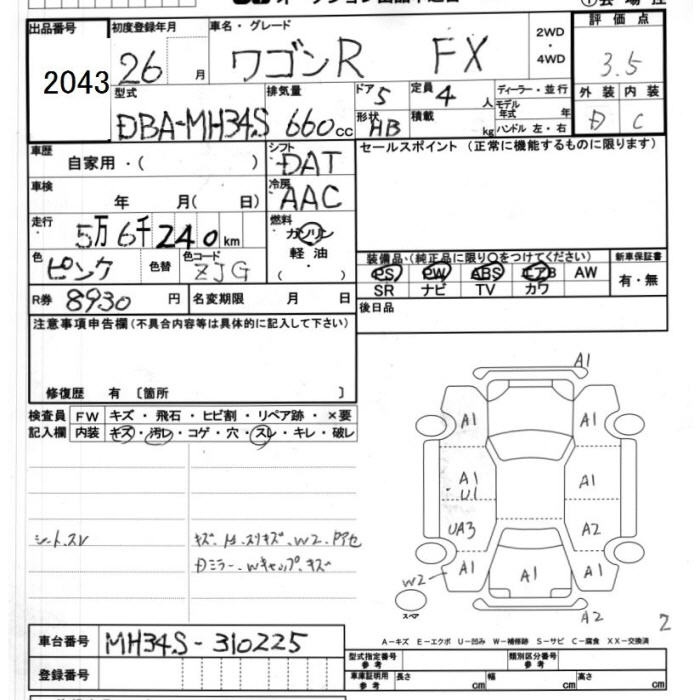 出品番号 初度登録年月 車名・グレード 2WD・4WD 評価点
2043 26 月 ワゴンR FX 3.5
型式 排気量 ドア 5 定員 4 人 ディーラー・並行 外装 内装
DBA-MH34S 660 cc 形状 HB 積載 kg モデル年式 年 ハンドル 左・右 D C
車歴 自家用・( ) シフト DAT セールスポイント (正常に機能するものに限ります)
車検 年 月( 日) 冷房 AAC
走行 5万6千240km 燃料 ガソリン 軽油
色 ピンク 色替 色コード ZJG 装備品・(純正品に限り○をつけてください) 新車保証書
PS PW ABS エアB AW 有・無
R券 8930 円 名変期限 月 日 SR ナビ TV カワ
注意事項申告欄(不具合内容等は具体的に記入して下さい) 後日品
修復歴 有 〔箇所 〕
検査員 FW キズ・飛石・ヒビ割・リペア跡・×要
記入欄 内装 キズ・汚レ・コゲ・穴・スレ・キレ・破レ
A1
A1 A1
A1 A1
U1
UA3 A2
A1 A1 A1
W2 スペア
A2
2
シートスレ キズ・スリキズ・W2・
Dミラー・Wキャップ・キズ
A-キズ E-エクボ U-凹み W-補修跡 S-サビ C-腐食 XX-交換済
車台番号 MH34S-310225 型式指定番号 参考 類別区分番号 参考
登録番号 車庫証明用 参考 長さ cm 幅 cm 高さ cm